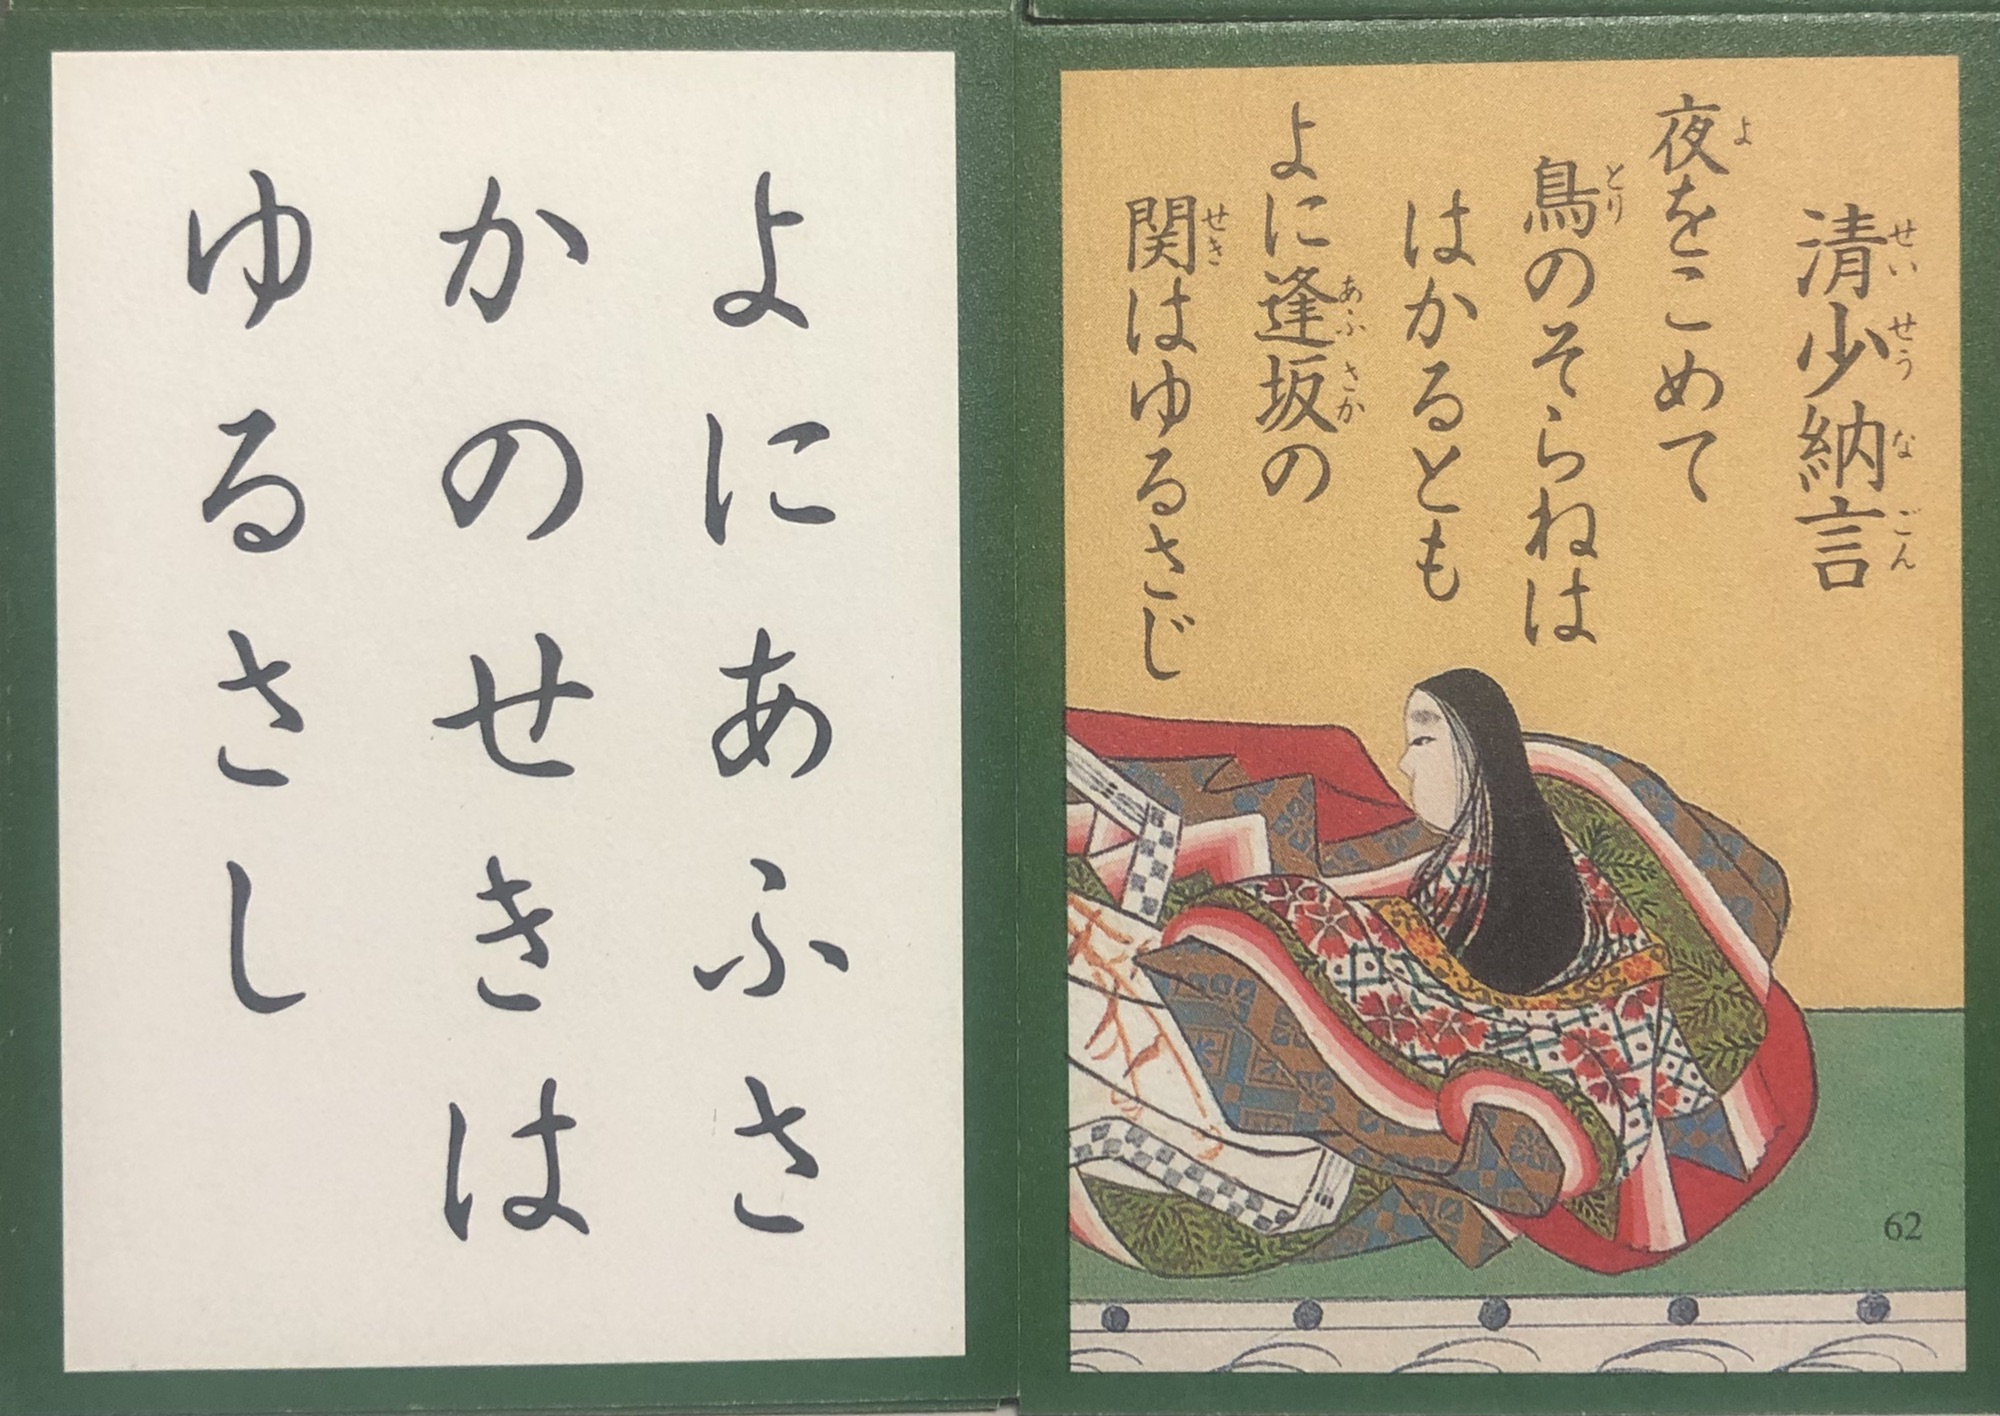 清少納言
せいせうなごん
夜をこめて
よ
鳥のそらねは
とり
はかるとも
よに逢坂の
あふさか
関はゆるさじ
せき
62
よにあふさ
かのせきは
ゆるさし